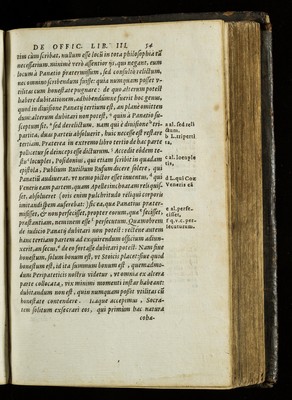 DE OFFIC. LIB. III. 54
tim cùm scribat, nullum esse locū in tota philosophia tā
necessarium. minimè verò assentior ijs, qui negant, eum
locum à Panætio prætermissum, sed consultò relictum,
nec omnino scribendum fuisse: quia nunquam posset v-
tilitas cum honestate pugnare: de quo alterum potest
habere dubitationem, adhibendúmne fuerit hoc genus,
quod in diuisione Panætij tertium est, an planè omitten
dum: alterum dubitari non potest, quin à Panætio su-
sceptum sit, sed derelictum. nam qui è diuisione tri-
partita, duas parteis absoluerit, huic necesse est restare
tertiam. Præterea in extremo libro tertio de hac parte
pollicetur se deinceps esse dicturum. Accedit eòdem te-
stis locuples, Posidonius, qui etiam scribit in quadam
epistola, Publium Rutilium Rufum dicere solere, qui
Panætiū audiuerat, vt nemo pictor esset inuentus, qui
Veneris eam partem, quam Apelles inchoatam reliquis-
set, absolueret (oris enim pulchritudo reliqui corporis
imitandi spem auferebat) sic ea, quæ Panætius præter-
misisset, & non perfecisset, propter eorum, quæ fecisset,
præstantiam, neminem esse persecutum. Quamobrem
de iudicio Panætij dubitari non potest: recténe autem
hanc tertiam partem ad exquirendum officium adiun-
xerit, an secus, de eo fortasse dubitari potest. Nam siue
honestum, solum bonum est, vt Stoicis placet: siue quod
honestum est, id ita summum bonum est, quemadmo-
dum Peripateticis nostris videtur, vt omnia ex altera
parte collocata, vix minimi momenti instar habeant:
dubitandum non est, quin nunquam possit vtilitas cū
honestate contendere. Itaque accepimus, Socra-
tem solitum exsecrari eos, qui primùm hæc natura
coha-
a al. sed reli
ctum.
b L. tripertita
c al. locuples
tis,
d L. qui Coæ
Veneris eā
e al. perfe-
cisset,
f q.v.c. per-
secuturum.